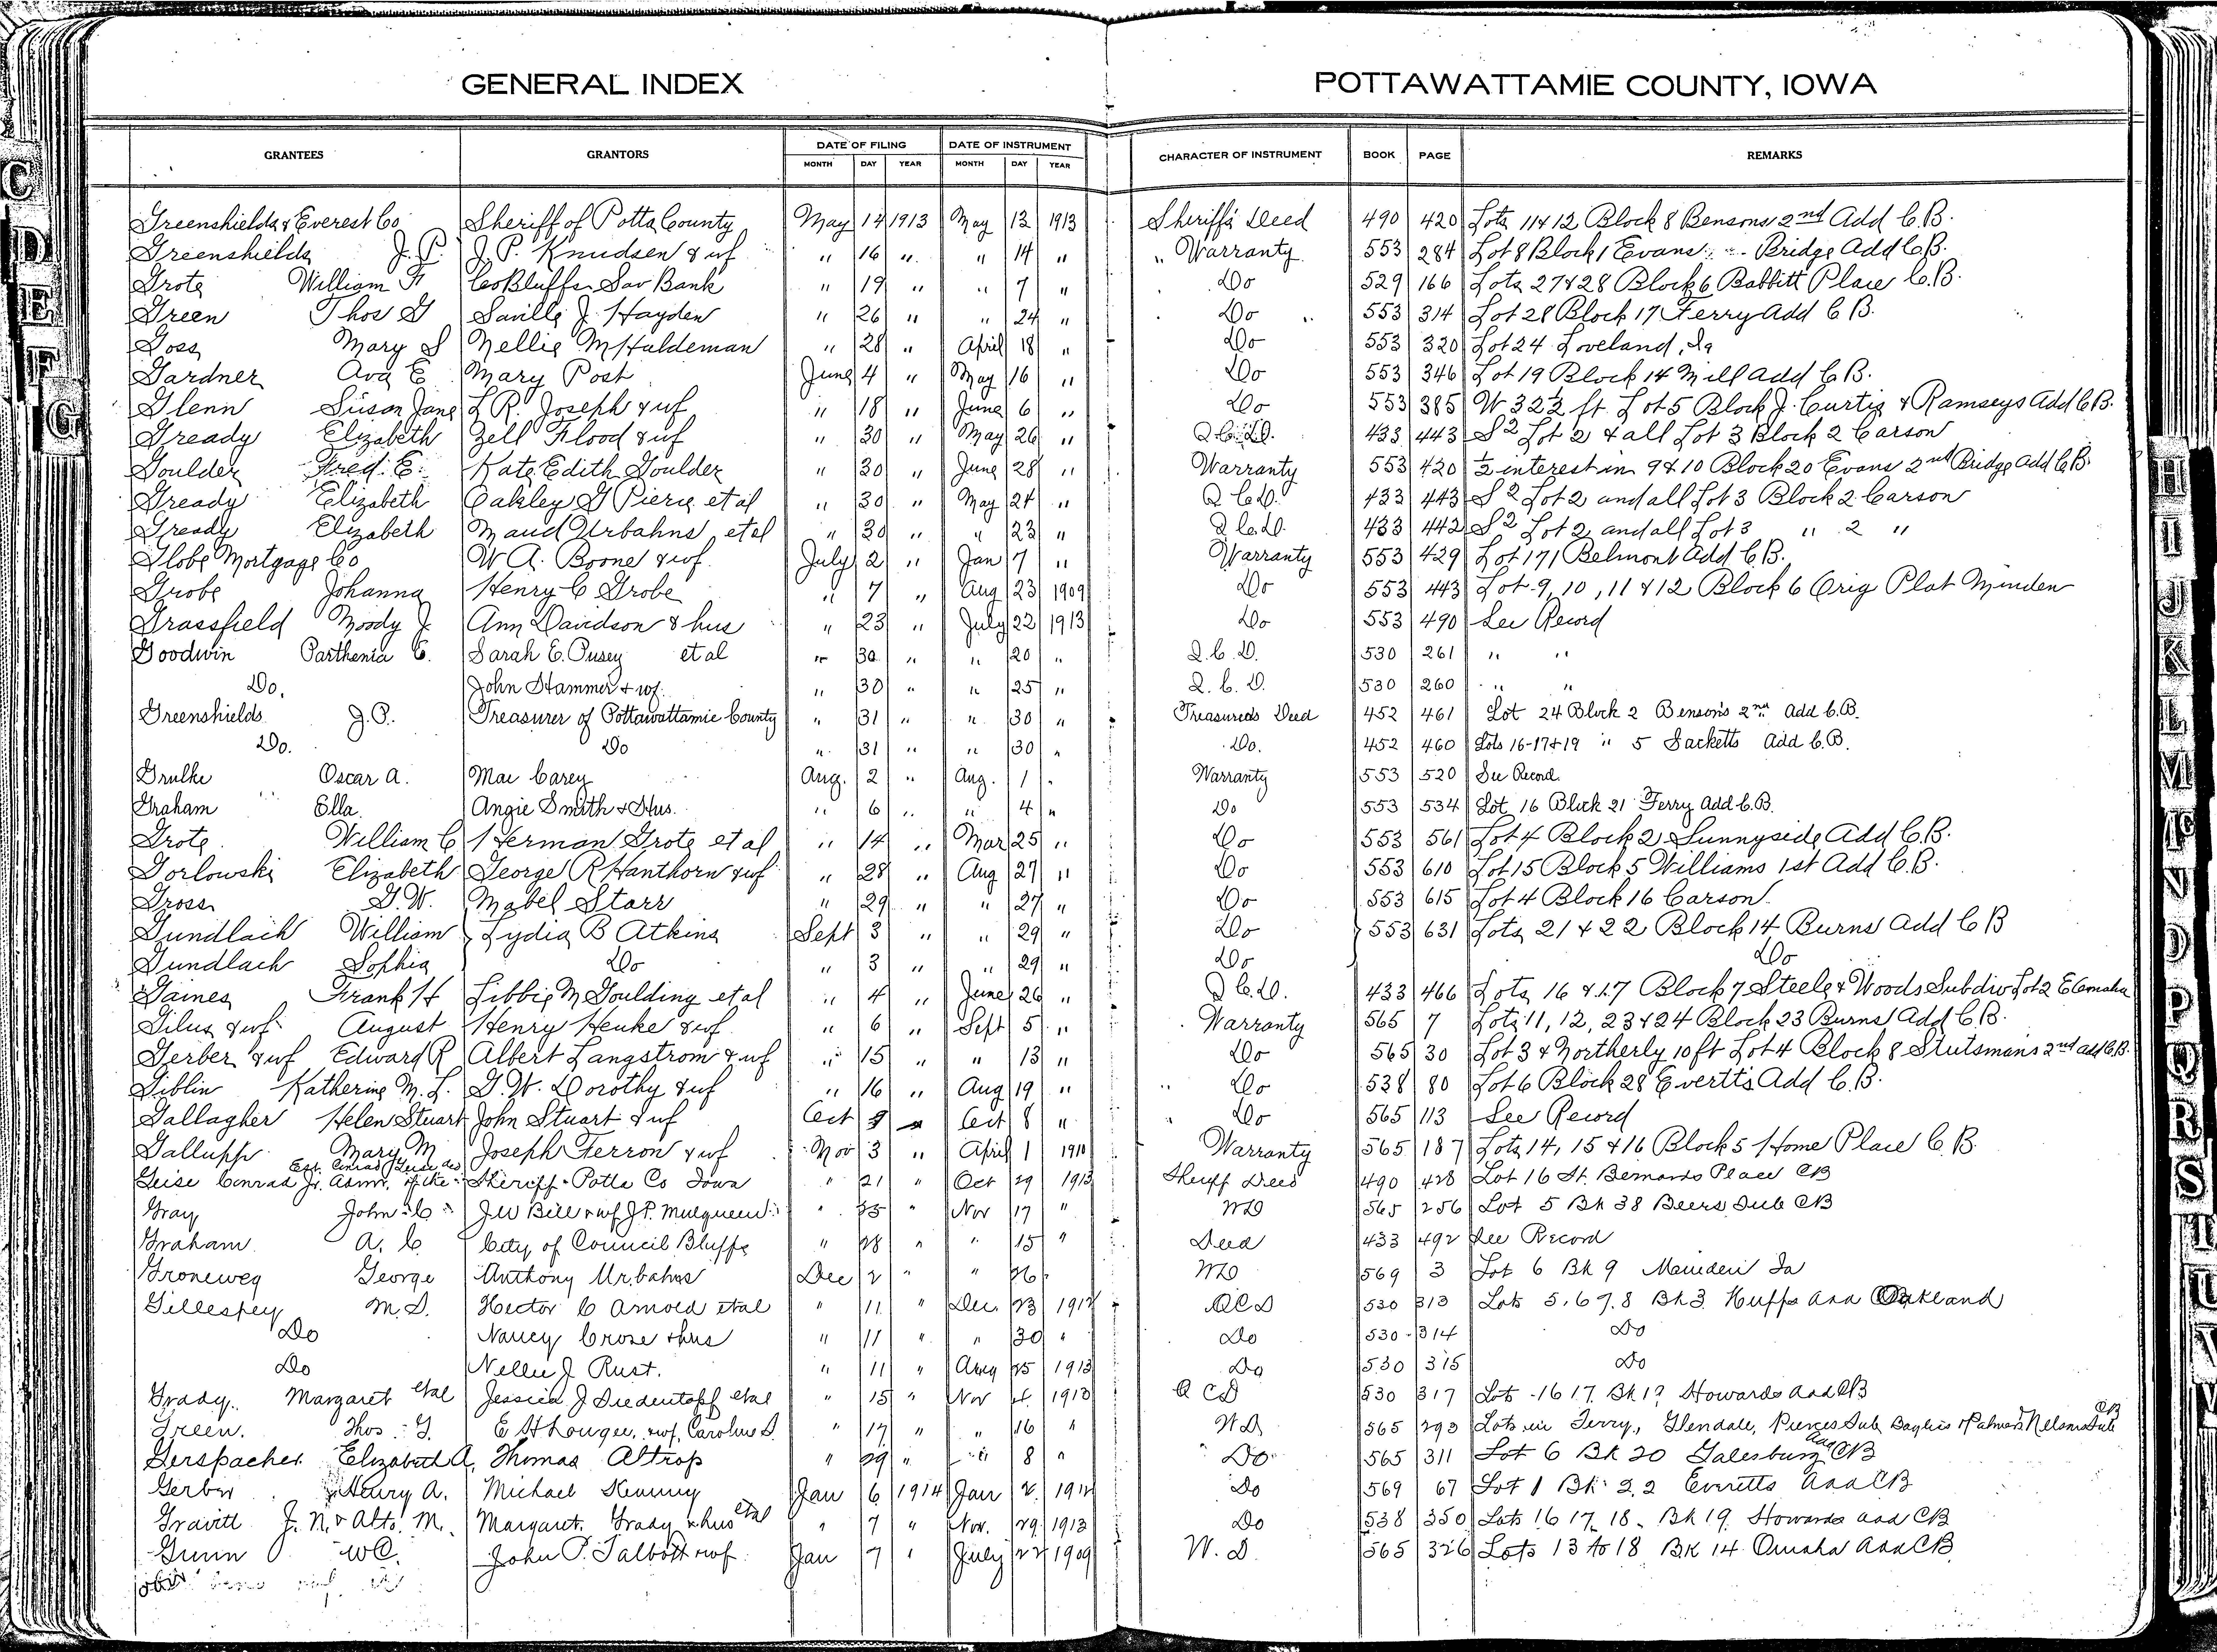 GENERAL INDEX POTTAWATTAMIE COUNTY, IOWA
GRANTEES GRANTORS DATE OF FILING DATE OF INSTRUMENT CHARACTER OF INSTRUMENT BOOK PAGE REMARKS
MONTH DAY YEAR MONTH DAY YEAR
Greenshields & Everest Co Sheriff of Potta County May 14 1913 May 13 1913 Sheriff's Deed 490 420 Lots 11 & 12 Block 8 Bensons 2nd Add C.B.
Greenshields J. P. J. P. Knudsen & wf " 16 " " 14 " " Warranty 553 284 Lot 8 Block 1 Evans Bridge Add C.B.
Grote William F Co Bluffs Sav Bank " 19 " " 7 " Do 529 166 Lots 27 & 28 Block 6 Babbitt Place C.B.
Green Thos G Saville J. Hayden " 26 " " 24 " Do 553 314 Lot 28 Block 17 Ferry Add C B.
Goss Mary S Nellie M Haldeman " 28 " April 18 " Do 553 320 Lot 24 Loveland, Ia
Gardner Ava E Mary Post June 4 " May 16 " Do 553 346 Lot 19 Block 14 Mill Add C B.
Glenn Susan Jane L R. Joseph & wf " 18 " June 6 " Do 553 385 W 32 2/3 ft Lot 5 Block J. Curtis & Ramseys Add C B.
Gready Elizabeth Zell Flood & wf " 30 " May 26 " Q.C.D. 433 443 S 2 Lot 2 & all Lot 3 Block 2 Carson
Goulder Fred. E. Kate Edith Goulder " 30 " June 28 " Warranty 553 420 1/2 interest in 9 & 10 Block 20 Evans 2nd Bridge Add C.B.
Gready Elizabeth Oakley G Pierce et al " 30 " May 24 " Q C.D. 433 443 S 2 Lot 2 and all Lot 3 Block 2 Carson
Gready Elizabeth Maud Urbahns et al " 30 " " 23 " Q C.D. 433 442 S 2 Lot 2 and all Lot 3 " 2 "
Globe Mortgage Co W A. Boone & wf July 2 " Jan 7 " Warranty 553 429 Lot 171 Belmont Add C.B.
Grobe Johanna Henry C Grobe " 7 " Aug 23 1909 Do 553 443 Lot 9, 10, 11 & 12 Block 6 Orig Plat Minden
Grassfield Moody J. Ann Davidson & hus " 23 " July 22 1913 Do 553 490 See Record
Goodwin Parthenia C. Sarah E. Pusey et al " 30 " " 20 " Q.C.D. 530 261 " "
Do. John Hammer & wf. " 30 " " 25 " Q.C.D. 530 260 " "
Greenshields J.P. Treasurer of Pottawattamie County " 31 " " 30 " Treasurer's Deed 452 461 Lot 24 Block 2 Benson's 2nd Add C.B.
Do. Do " 31 " " 30 " Do. 452 460 Lots 16-17 & 19 " 5 Sacketts Add C.B.
Grulke Oscar A. Mae Carey Aug. 2 " Aug. 1 " Warranty 553 520 See Record.
Graham Ella. Angie Smith & Hus. " 6 " " 4 " Do 553 534 Lot 16 Block 21 Ferry Add C.B.
Grote William C Herman Grote et al " 14 " Mar 25 " Do 553 561 Lot 4 Block 2 Sunnyside Add C.B.
Gorlowski Elizabeth George R Hanthorn & wf " 28 " Aug 27 " Do 553 610 Lot 15 Block 5 Williams 1st Add C.B.
Gross G.W. Mabel Starr " 29 " " 27 " Do 553 615 Lot 4 Block 16 Carson
Gundlach William Lydia B Atkins Sept 3 " " 29 " Do 553 631 Lots 21 & 22 Block 14 Burns Add C B
Gundlach Sophia Do " 3 " " 29 " Do Do
Gaines Frank H Libbie M Goulding et al " 4 " June 26 " Q.C.D. 433 466 Lots 16 & 17 Block 7 Steele & Woods Subdiv Lot 2 E Omaha
Gilus & wf August Henry Henke & wf " 6 " Sept 5 " Warranty 565 7 Lots 11, 12, 23 & 24 Block 23 Burns Add C.B.
Gerber & wf Edward R Albert Langstrom & wf " 15 " " 13 " Do 565 30 Lot 3 & Northerly 10 ft Lot 4 Block 8 Stutsmans 2nd Add C.B.
Giblin Katherine M. L. G.W. Dorothy & wf " 16 " Aug 19 " Do 538 80 Lot 6 Block 28 Evertt's Add C.B.
Gallagher Helen Stuart John Stuart & wf Oct 9 " Oct 8 " Do 565 113 See Record
Gallupp Mary M Joseph Ferron & wf Nov 3 " April 1 1910 Warranty 565 187 Lots 14, 15 & 16 Block 5 Home Place C.B
Est. Conrad Geise decd
Geise Conrad Jr. Admr. of the Sheriff Potta Co Iowa " 21 " Oct 29 1913 Sheriff Deed 490 428 Lot 16 St. Bernards Place CB
Gray John C J W Bell & wf J.P. Mulqueen " 25 " Nov 17 " WD 565 256 Lot 5 Bk 38 Beers Sub CB
Graham A. C City of Council Bluffs " 28 " " 15 " Deed 433 492 See Record
Groneweg George Anthony Urbahns Dec 2 " " 26 WD 569 3 Lot 6 Bk 9 Minden Ia
Gillespey M.D. Hector C Arnold et al " 11 " Dec. 23 1912 QCD 530 313 Lots 5.6 7.8 Bk 3. Huffs Add Oakland
Do Nancy Crose & hus " 11 " " 30 " Do 530 314 Do
Do Nellie J. Rust. " 11 " Aug 25 1913 Do 530 315 Do
Grady. Margaret et al Jessica J Diedentopf et al " 15 " Nov 4 1913 Q C D 530 317 Lots 16 17. Bk 19 Howards Add CB
Green. Thos. G. E H Lougee & wf. Caroline D. " 17 " " 16 " WD 565 293 Lots in Ferry, Glendale, Pierces Sub Bayliss & Palmers Nelsons Sub CB
Gerspacher Elizabeth A. Thomas Altrop " 29 " " 8 " Do 565 311 Lot 6 Bk 20 Galesburg Add CB
Gerber Henry A. Michael Kenny Jan 6 1914 Jan 2 1914 Do 569 67 Lot 1 Bk 22 Everetts Add CB
Gravitt J. N. & Alto. M. Margaret. Grady & hus et al " 7 " Nov. 29 1913 Do 538 350 Lots 16 17 18 Bk 19 Howards Add CB
Gunn W C. John P. Talbott & wf. Jan 7 " July 22 1909 W.D. 565 326 Lots 13 to 18 Bk 14 Omaha Add CB
C
D
E
F
G
H
I
J
K
L
M
N
O
P
Q
R
S
T
U
V